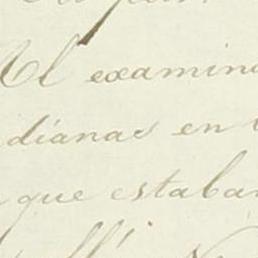 Al examina
dianas en
que estaban
allí